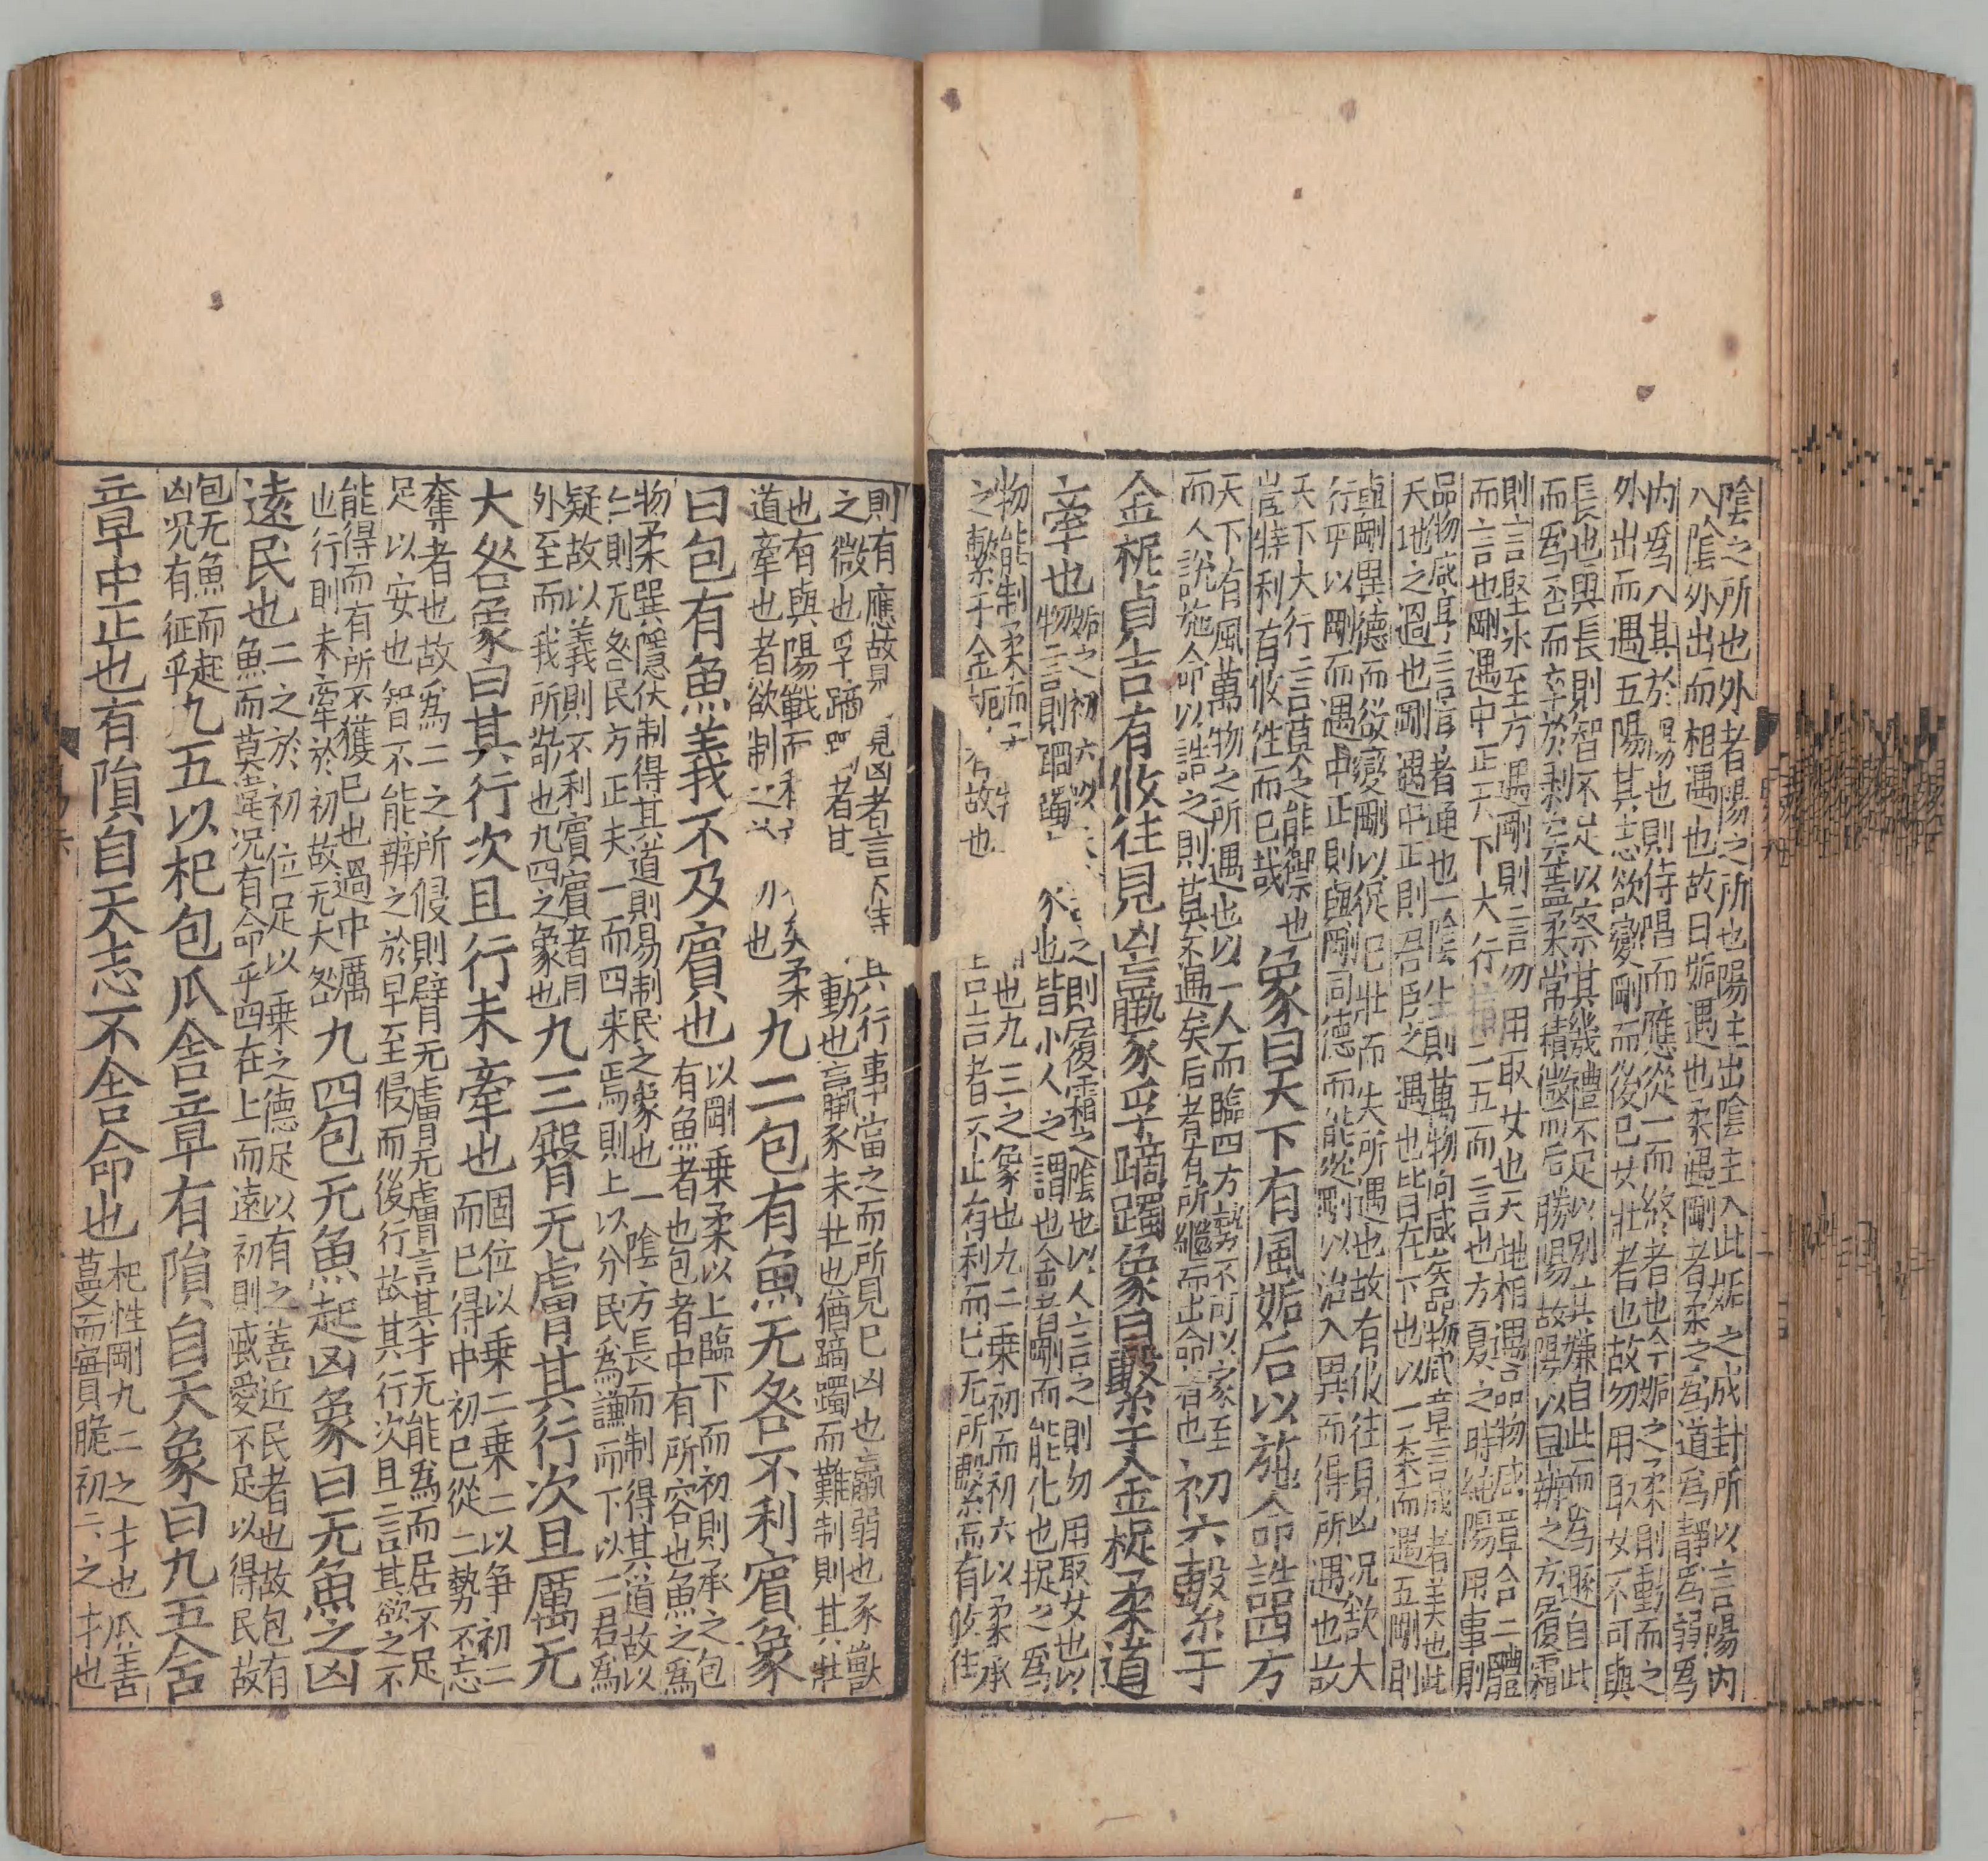 陰之所也外者陽之所也陽主出陰主入此姤之成卦所以言陽内
八陰外出而相遇也故曰姤遇也柔遇剛者柔之爲道爲靜爲弱爲
内爲入其於陽也則待唱而應從一而終者也今姤之柔則動而之
外出而遇五陽其志欲變剛而後已女壯者也故勿用取女不可與
長也與長則智不足以察其幾禮不足以別其嫌自此而爲遯自此
而爲否而卒於剥矣蓋柔常積微而后勝陽故陽以早辨之方履霜
則言堅氷至方遇剛則言勿用取女也天地相遇品物咸章合二體
而言也剛遇中正天下大行指二五而言也方夏之時純陽用事則
品物咸亨言亨者通也一陰生則萬物向咸矣品物咸章言咸者美也此
天地之遇也剛遇中正則君臣之遇也皆在下也以一柔而遇五剛則
與剛異德而欲變剛以從己壯而失所遇也故有攸往見凶況欲大
行乎以剛而遇中正則與剛同德而能從剛以治入異而得所遇也故
天下大行言莫之能禦也
豈特利有攸往而已哉 象曰天下有風姤后以施命誥四方
天下有風萬物之所遇也以一人而臨四方勢不可以家至
而人說施命以誥之則莫不遇矣后者有所繼而出命者也 初六繫于
金柅貞吉有攸往見凶羸豕孚蹢躅象曰繫于金柅柔道
牽也 姤之初六以 之則履霜之陰也以人言之則勿用取女也以
物言則蹢躅 豕也皆小人之謂也金者剛而能化也柅之爲
物能制柔而 也九三之象也九二乗初而初六以柔承
之繫于金柅 故也 吉言者不止有利而已无所繫而有攸往
則有應故見 見凶者言下 行事當之而所見已凶也羸弱也豕獸
之微也孚蹢躅者 動也言羸豕未壯也猶蹢躅而難制則其壯
也有與陽戰而
道牽也者欲制之 也 柔 九二包有魚无咎不利賓象
曰包有魚義不及賓也 以剛乗柔以上臨下而初則承之包
有魚者也包者中有所容也魚之爲
物柔巽隱伏制得其道則易制民之象也一陰方長而制得其道故以
亡則无咎民方正夫一而四來焉則上以分民爲謙而下以二君爲
疑故以義則不利賓賓者用
外至而我所敬也九四之象也 九三臀无膚其行次且厲无
大咎象曰其行次且行未牽也 個位以乗二乗二以争初二
而已得中初已從二勢不忘
奪者也故爲二之所侵則臂无膚臀无膚言其才无能爲而居不足
足以安也智不能辨之於早至侵而後行故其行次且言其欲之不
能得而有所不獲已也過中厲
也行則未牽於初故无大咎 九四包无魚起凶象曰无魚之凶
遠民也 二之於初位足以乗之德足以有之善近民者也故包有
魚而莫違况有命乎四在上而遠初則戚愛不足以得民故
包无魚而起
凶况有征乎 九五以杞包瓜含章有隕自天象曰九五含
章中正也有隕自天志不舍命也 杞性剛九二之才也瓜善
蔓而實脆初六之才也